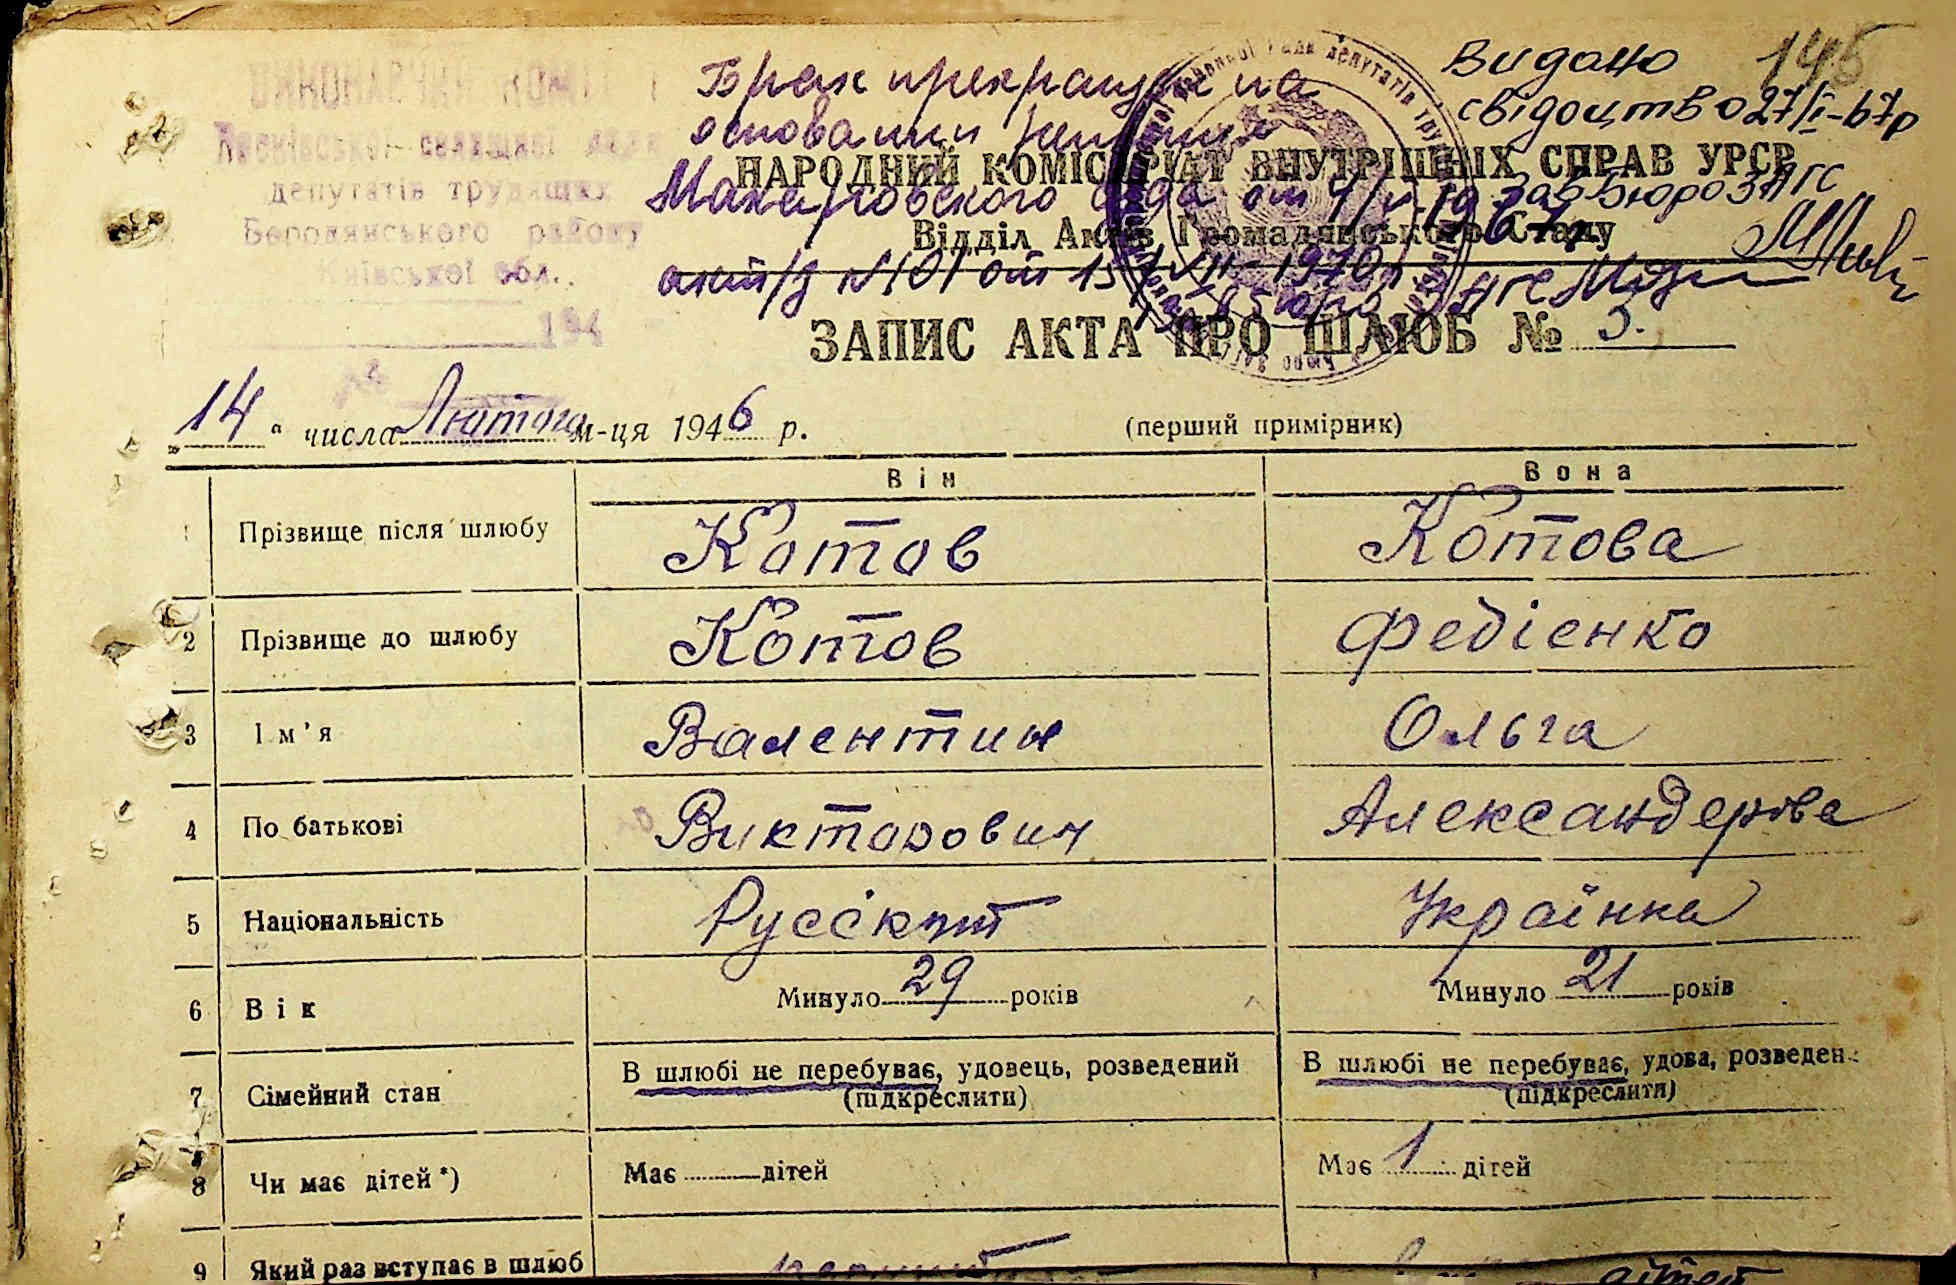 ВИКОНАВЧИЙ КОМІТЕТ
сільської ради
депутатів трудящих
Бородянського району
Київської обл.
194
Брак прекращен на
основании решения
Макаровского суда от 1967г
акт/з №101 от 15/VII-1970г
Видано
свідоцтво 27/I-67р
Зав Бюро ЗАГС
145
НАРОДНИЙ КОМІСАРІАТ ВНУТРІШНІХ СПРАВ УРСР
Відділ Актів Громадянського Стану
ЗАПИС АКТА ПРО ШЛЮБ № 3.
„14" числа Лютого м-ця 1946 р. (перший примірник)
Він Вона
1 Прізвище після шлюбу Котов Котова
2 Прізвище до шлюбу Котов Федієнко
3 Ім'я Валентин Ольга
4 По батькові Викторович Александеровa
5 Національність Русский Українка
6 Вік Минуло 29 років Минуло 21 років
7 Сімейний стан В шлюбі не перебуває, удовець, розведений В шлюбі не перебуває, удова, розведен
(підкреслити) (підкреслити)
8 Чи має дітей *) Має дітей Має 1 дітей
9 Який раз вступає в шлюб